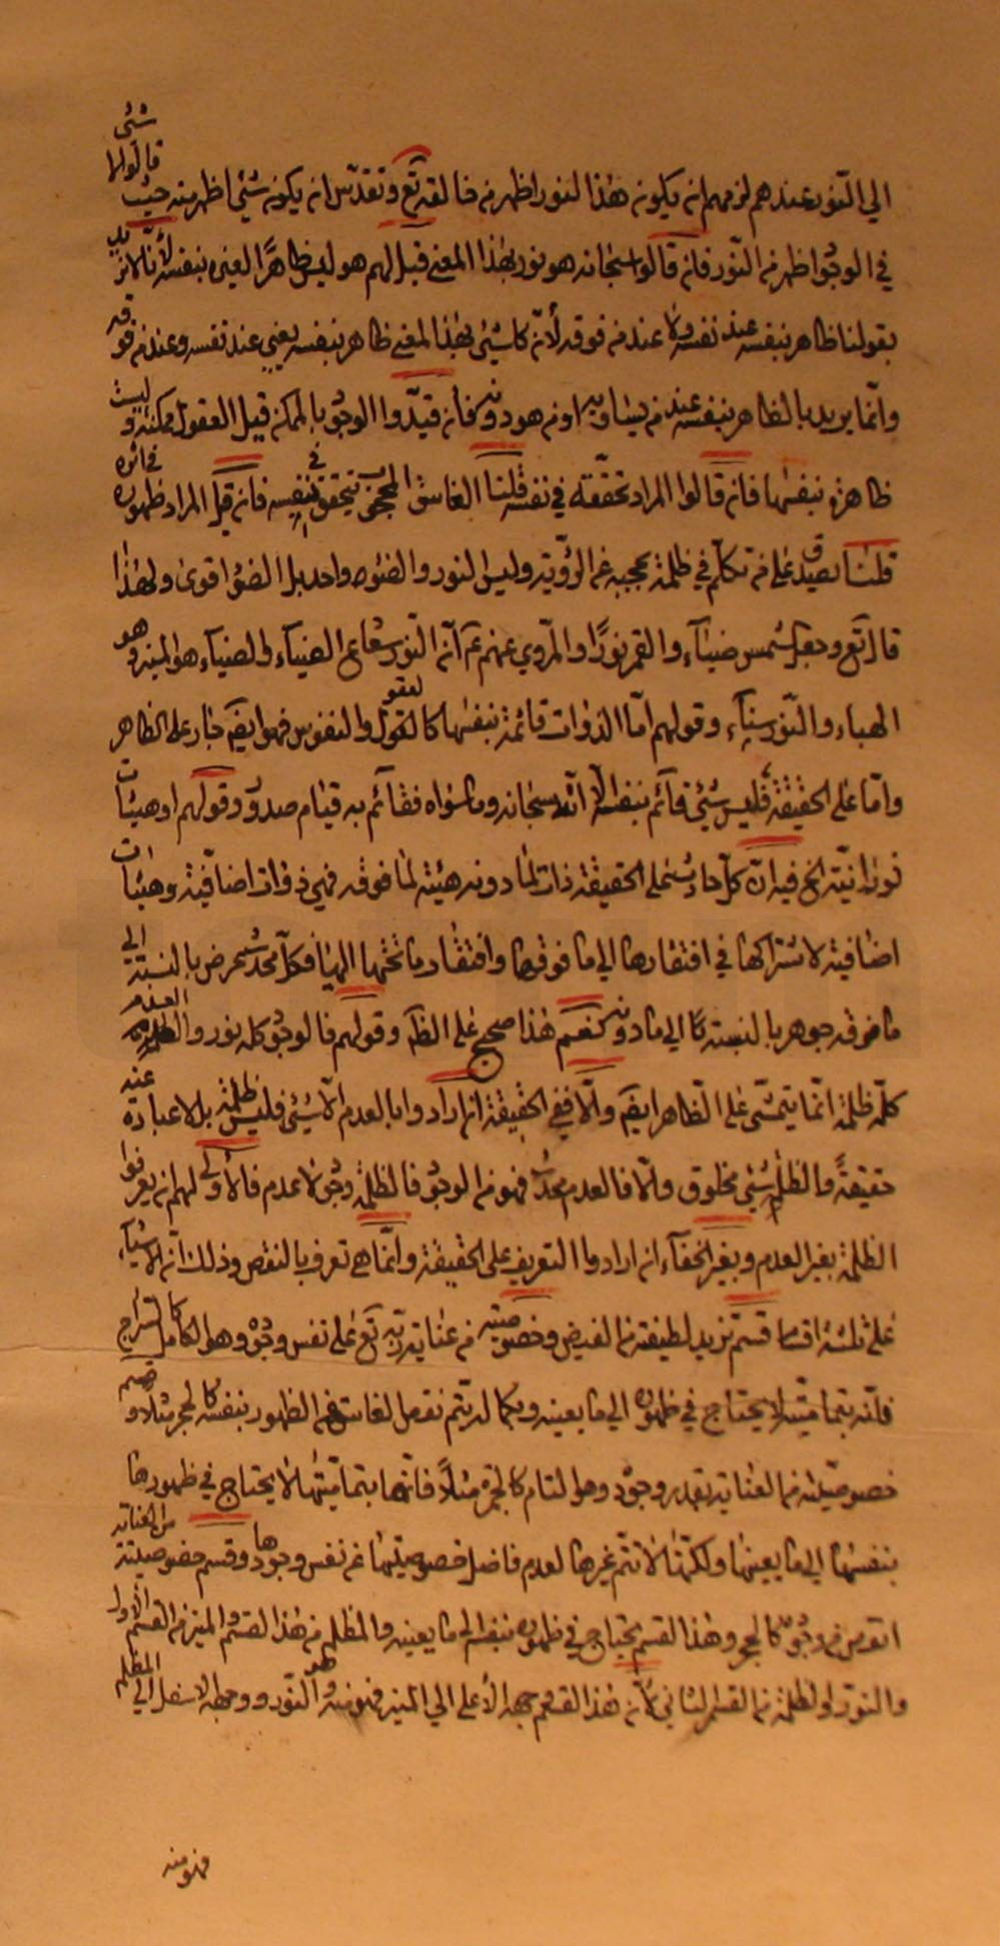 الي النّور عندهم لزمهم ان يكون هذا النور اظهر من خالقه تع و تقدّس ان يكون شئ اظهر منه حيث قالوا لا شئ
في الوجود اظهر من النّور فان قالوا سبحانه هو نور بهذا المعنى قيل لهم هو ليس ظاهرًا لغيره بنفسه لأنّا لا نريد
بقولنا ظاهر بنفسه عند نفسه ولا عند من فوقه لأنّ كل شئ بهذا المعنى ظاهر بنفسه يعني عند نفسه وعند من فوقه
وانّما يريد بالظاهر بنفسه عند من يساويه او من هو دونه فان قيّدوا الوجود بالممكن قيل العقول ممكنة وليست
ظاهرة بنفسها فان قالوا المراد تحققه في نفسه قلنا الغاسق المحجوب يتحقق في نفسه فان قيل المراد ظهوره في اثره
قلنا يصدق على من تكلّم في ظلمة تحجبه عن الرؤية وليس النور والضوء واحد بل الضوء اقوى ولهذا
قال تع وجعل الشمس ضياء والقمر نورًا والمروي عنهم ع انّ النّور شعاع الضياء والضياء هو المنير وهو
البهاء والنّور سناء وقولهم امّا الذوات قائمة بنفسها كالعقول والنفوس فهو ايضًا جار على الظاهر
وامّا على الحقيقة فليس شئ قائم بنفسه الّا الله سبحانه وما سواه فقائم به قيام صدور وقولهم او هيئات
نورانيّة الخ فيه ان كلّ حادث على الحقيقة ذات لما دونه هيئة لما فوقه فهي ذوات اضافيّة وهيئات
اضافية لاشتراكها في افتقارها الى ما فوقها وافتقار ما تحتها اليها فكلّ محدث عرض بالنسبة الى
ما فوقه جوهر بالنسبة الى ما دونه نعم هذا صحيح على الظاهر وقولهم فالوجود كله نور والعدم
كلّه ظلمة انّما يتمشّى على الظاهر ايضًا والّا ففي الحقيقة ان ارادوا بالعدم الّا شئ فليس ظلمة بل لا عبارة عنه
حقيقةً والظلمة شئ مخلوق والّا فالعدم محدث فهو من الوجود فالظلمة وجود لا عدم فالأولى لهم ان يعرفوا
الظلمة بغير العدم وبغير الخفاء ان ارادوا التعريف على الحقيقة وانّما هي تعرف بالنقص وذلك انّ الاشياء
على ثلثة اقسام قسم تزيد لطيفته من الفيض وخصوصيته من عناية ربه تع على نفس وجوده وهو الكامل كالسراج
فانّه بتماميّته لا يحتاج في ظهوره الى ما يعينه وبكماله يتمّ نقص الغاسق عن الظهور بنفسه كالحجر مثلًا وقسم
خصوصيته من العناية بقدر وجوده وهو التام كالجمرة مثلًا فانّها بتماميّتها لا يحتاج في ظهورها
بنفسها الى ما يعينها ولكنّها لا تتم غيرها لعدم فاضل خصوصيتها عن نفس وجودها وقسم خصوصيته من العناية
انقص من وجوده كالحجر وهذا القسم يحتاج في ظهوره بنفسه الى ما يعينه والمظلم من هذا القسم والمنير من القسم الاول
والنور والظلمة من القسم الثاني لأن هذا القسم وجهه الأعلى الى المنير فهو منه وهو النّور ووجهه الاسفل الى المظلم
فهو منه